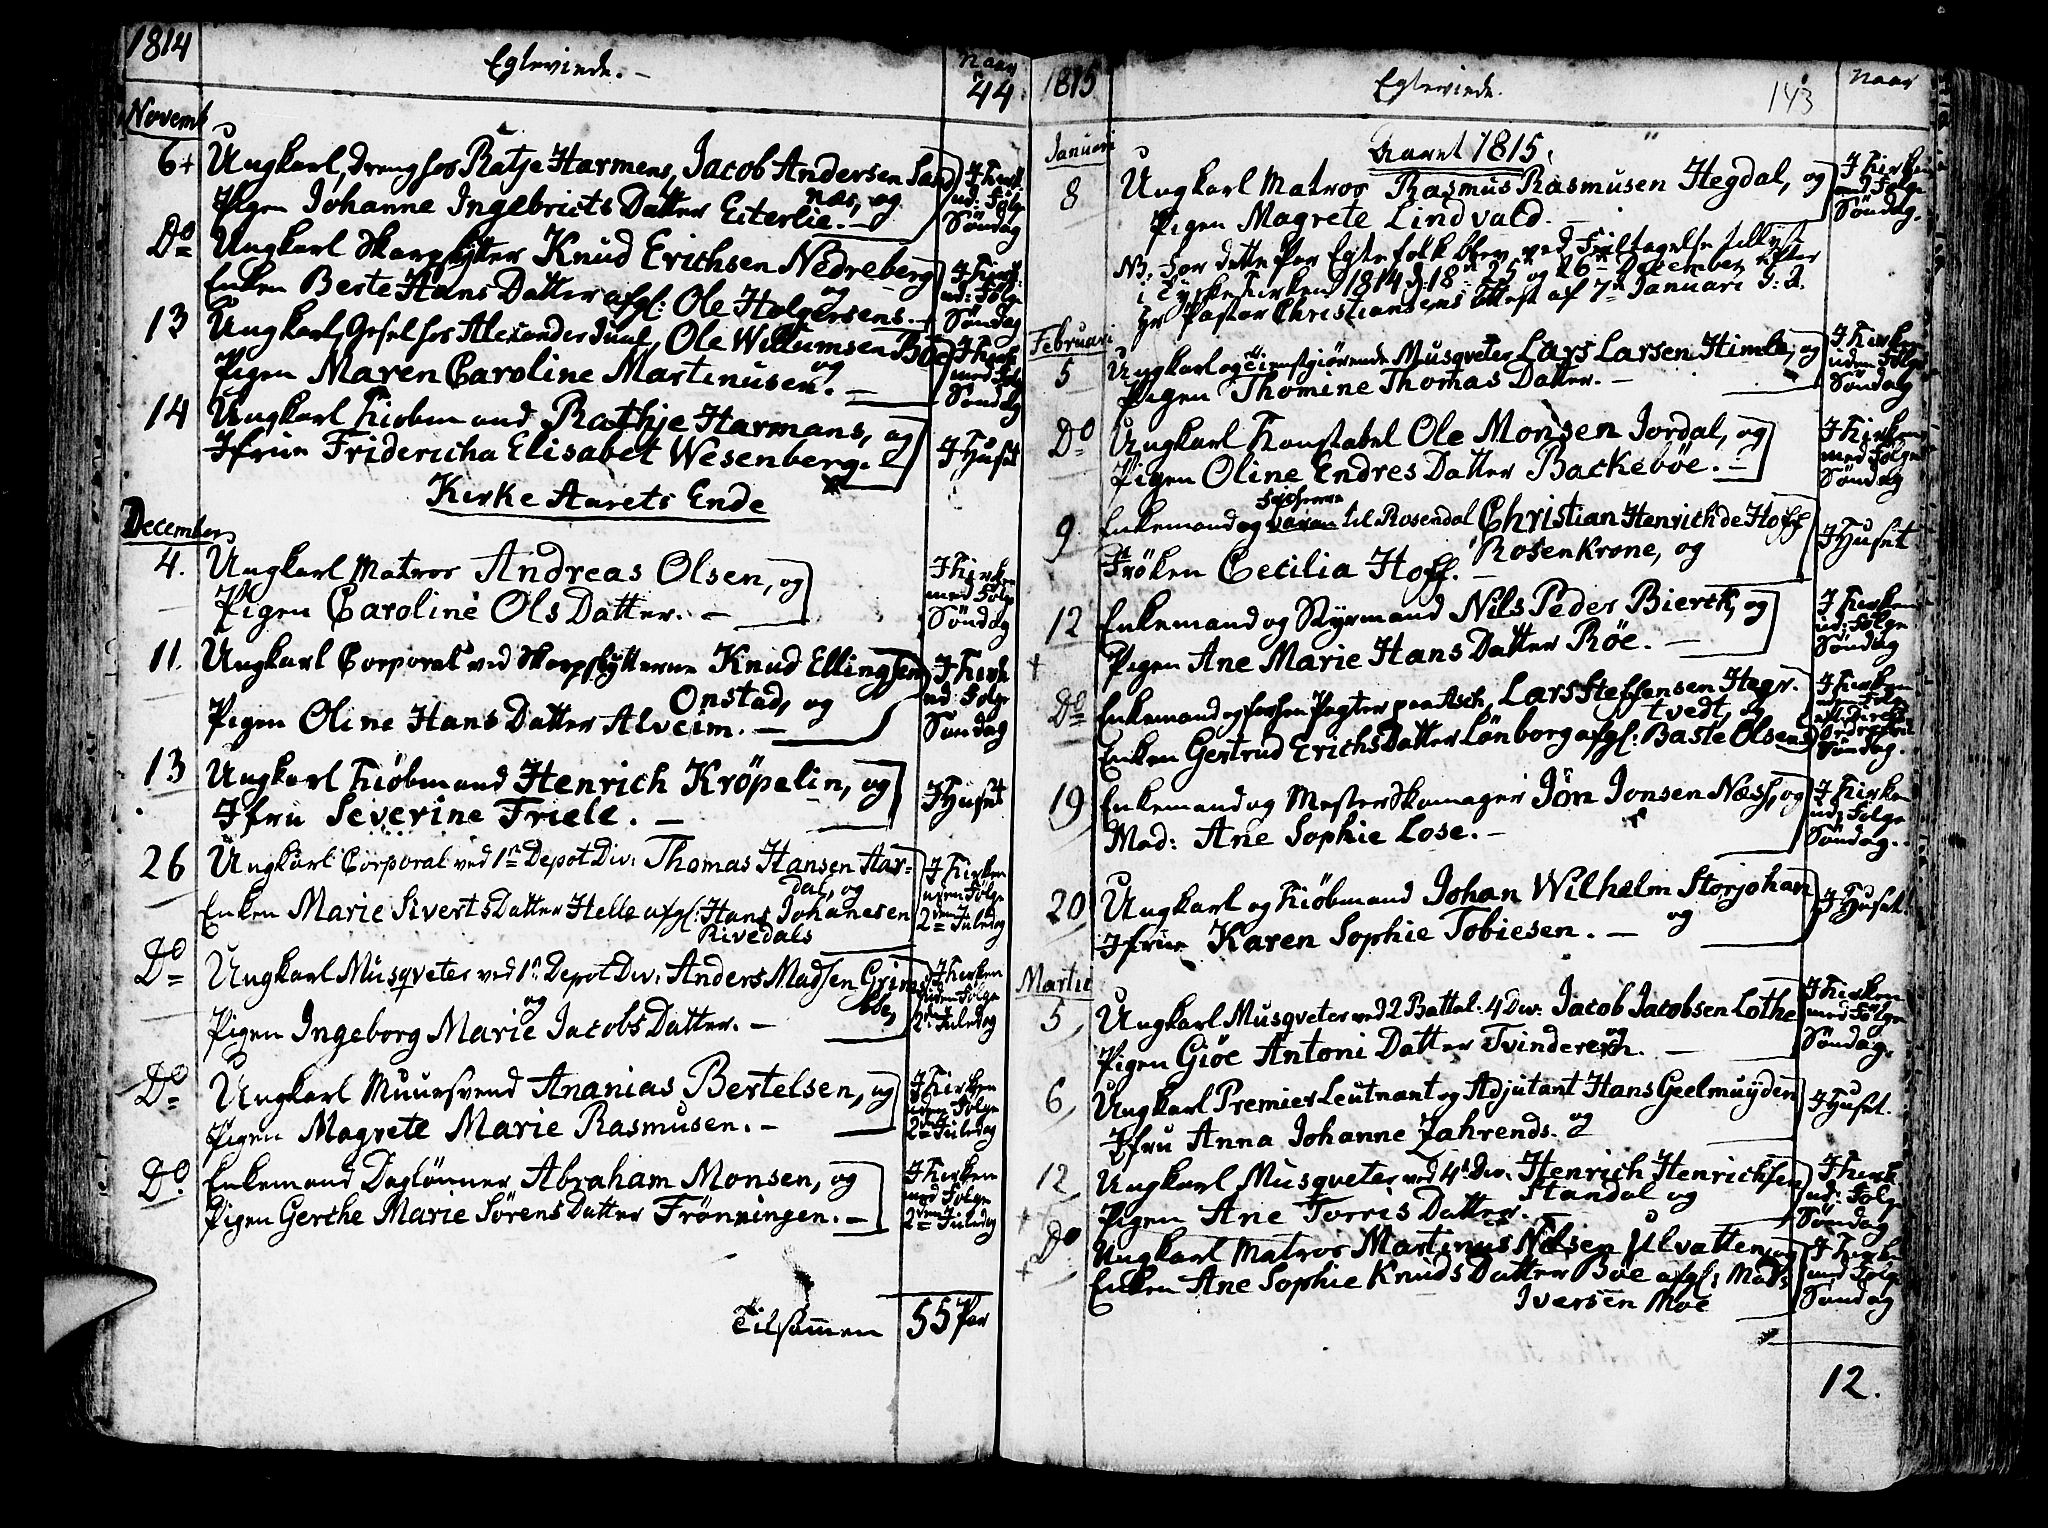 1814
Egteviede.
Naar
44
Novemb
6+ Ungkarl, Dreng hos Ratje Harmens, Jacob Andersen Sand
næs, og
Pigen Johanne Ingebricts Datter Eiterlie. —
I Kirk
ud: Følge
Søndag
Do Ungkarl Skarpskytter Knud Erichsen Nedreberg
og
Enken Berte Hans Datter afgl: Ole Holgersens. —
I Kirk:
ud: Følge
Søndag
13 Ungkarl, Gesel hos Alexander Juul, Ole Willumsen Böe
og
Pigen Maren Caroline Martinusen. —
I Kirk
med Følg
Søndag
14 Ungkarl Kiøbmand Rathje Harmans, og
Jfrue Fridericha Elisabet Wesenberg. —
I Huset
Kirke Aarets Ende
December
4. Ungkarl Matros Andreas Olsen, og
Pigen Caroline Ols Datter. —
I Kirken
med Følge
Søndag
11. Ungkarl Corporal ved Skarpskytterne Knud Ellingsen
Onstad, og
Pigen Oline Hans Datter Alveim. —
I Kirk
ud: Følge
Søndag
13 Ungkarl Kiöbmand Henrich Kröpelin, og
Jfru Severine Friele. —
I Huset
26 Ungkarl Corporal ved 1ste Depot Div: Thomas Hansen Aar=
dal, og
Enken Marie Siverts Datter Helle afgl: Hans Johanesen
Rivedals
I Kirken
uden Følge
2den Juledag
Do Ungkarl Musqveter ved 1ste Depot Div: Anders Madsen Grims
og
Pigen Ingeborg Marie Jacobs Datter. —
I Kirken
uden Følge
2den Juledag
Do Ungkarl Muursvend Ananias Bertelsen, og
Pigen Magrete Marie Rasmusen. —
I Kirken
uden Følge
2den Juledag
Do Enkemand Daglönner Abraham Monsen, og
Pigen Gerche Marie Sörens Datter Frönningen. —
I Kirken
med Følge
2den Juledag
Tilsammen 55 Par
1815
Egteviede.
143
Naar
Januari
Aaret 1815.
8 Ungkarl Matros Rasmus Rasmusen Hegdal, og
Pigen Magrete Lindvald. —
I Kirken
med Følge
Søndag.
NB. For dette Par Egtefolk blev ved Tiltagelse tillyst
i Tyskekirken 1814 d: 18de 25de og 26de December efter
Hr Pastor Christiansens Attest af 7de Januari
Februari
5 Ungkarl og tienstgiørende Musqveter Lars Larsen Himle, og
Pigen Thomine Thomas Datter. —
I Kirken
uden Følge
Søndag
Do Ungkarl Konstabel Ole Monsen Jordal, og
Pigen Oline Endres Datter Backebøe. —
I Kirken
med Følge
Søndag
9. Enkemand og til Rosendal Christian Henrich de Hoff
Rosenkrone, og
Frøken Cecilia Hoff. —
I Huset
12 Enkemand og Styrmand Nils Peder Bierck, og
Pigen Ane Marie Hans Datter Röe. —
I Kirken
ud: Følge
Søndag
Do Enkemand og forhen Pagter paa Ask, Lars Steffensen Hegr.
tvedt, og
Enken Gertrud Erichs Datter Lönborg afgl: Baste Olsens
I Kirken
Søndag.
19 Enkemand og Mester Skomager Jön Jonsen Næss, og
Mad: Ane Sophie Lose. —
I Kirken
ud: Følge
Søndag.
20 Ungkarl og Kiøbmand Johan Wilhelm Storjohan
og
Jfrue Karen Sophie Tobiesen. —
I Huset.
Martii
5, Ungkarl Musqveter ved 2 Battal: 4 Div: Jacob Jacobsen Lothe
og
Pigen Giöe Antoni Datter Tvindereim. —
I Kirken
med Følge
Søndag.
6, Ungkarl Premier Leutnant og Adjutant Hans Geelmuyden
og
Jfru Anna Johanne Zahrends.
I Huset.
12, Ungkarl Musqveter ved 4de Div: Henrich Henrichsen
Standal og
Pigen Ane Torris Datter. —
I Kirk
ud: Følge
Søndag
Do Ungkarl Matros Martinus Nilsen Ulvatten, og
Enken Ane Sophie Knuds Datter Böe afgl: Mads
Iversen Moe
I Kirken
ud Følge
Søndag
12.